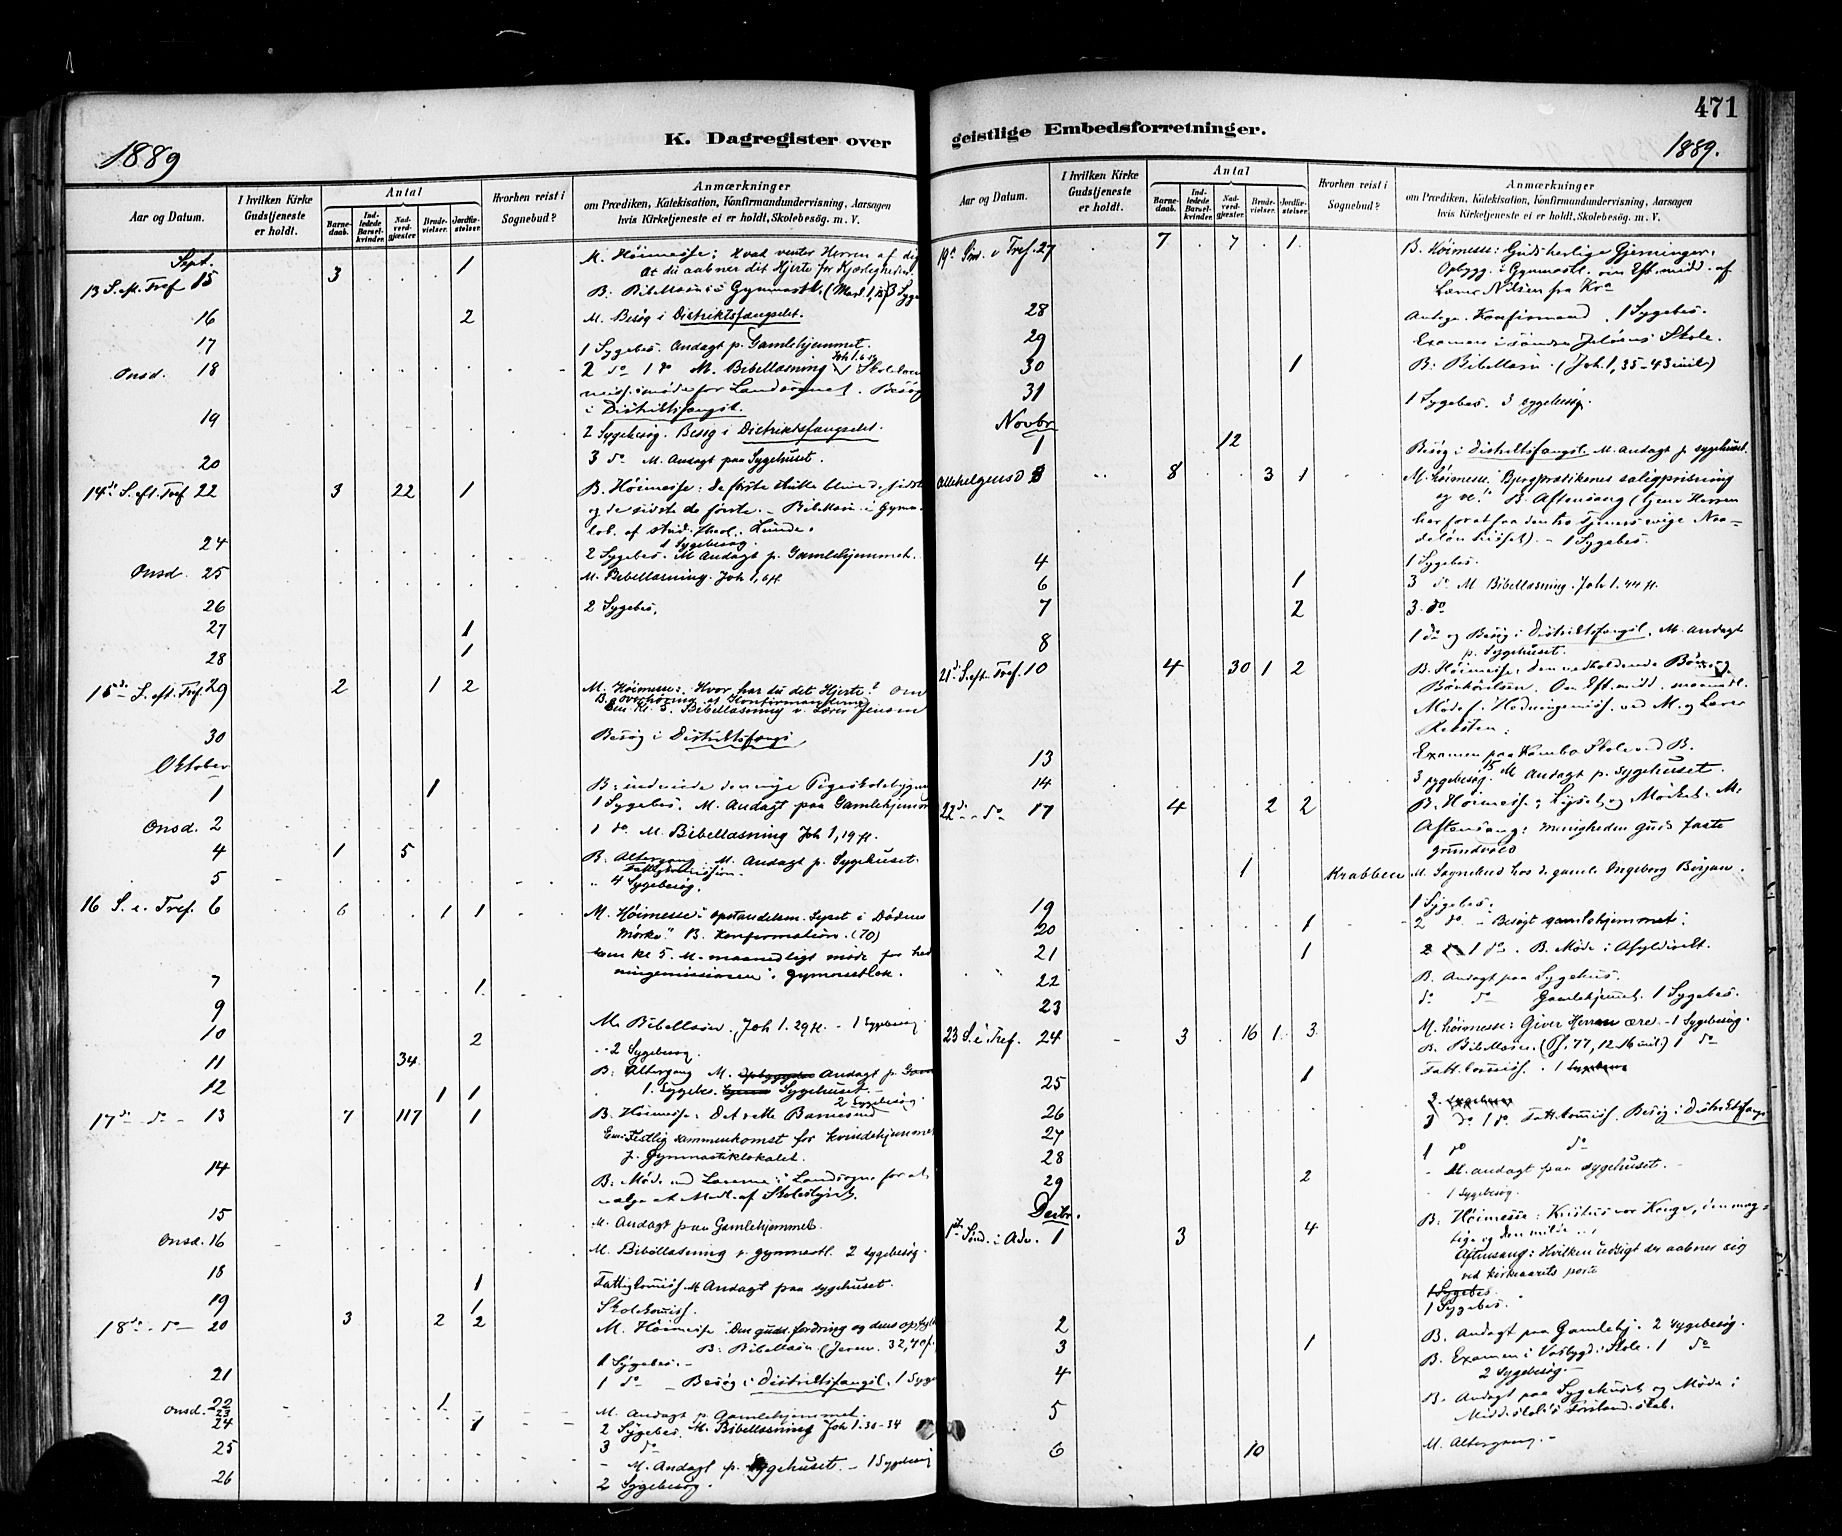 471
K. Dagregister over geistlige Embedsforretninger.
1889
1889.
Aar og Datum.
I hvilken Kirke Gudstjeneste er holdt.
Antal
Barne-daab.
Ind-ledede Barsel-kvinder.
Nad-verd-gjæster.
Brude-vielser.
Jordfæ-stelser.
Hvorhen reist i Sognebud?
Anmærkninger
om Prædiken, Katekisation, Konfirmandundervisning, Aarsagen
hvis Kirketjeneste ei er holdt, Skolebesøg. m. V.
Sept.
13 S. eft. Tref 15 3 1 M. Høimesse: Hvad venter Herren af dig
At du aabner dit Hjerte for Kjærligheden.
B. Bibellæsn. i Gymnastl.
16 2 M. Besøg i Distriktsfængselet.
17 1 Sygebes. Andagt p. Gamlehjemmet.
Onsd. 18 2 do 1 do M. Bibellæsning
møde for Landsognet. Besøg
i Distriktsfængsl.
19 2 Sygebesøg. Besøg i Distriktsfængselet.
20 3 do M. Andagt paa Sygehuset.
14de S. eft. Tref 22 3 22 1 B. Høimesse: de første skulle blive d. sidste
og de sidste de første. - Bibellæsn. i Gymn.
lok. af stud. theol. Lunde.
1 Sygebesøg.
24 2 Sygebes. M Andagt p. Gamlehjemmet.
Onsd. 25 M. Bibellæsning. Joh 1, 6 ff.
26 2 Sygebes.
27 1
28 1
15de S. eft. Tref. 29 2 1 2 M. Høimesse: Hvor har du dit Hjerte?
B. Overhøring af Konfirmanderne
Em. Kl. 5. Bibellæsning v. Lærer Jensen
30 Besøg i Distriktsfængs.
Oktober
1 1 B. indviede den nye Pigeskolebygn.
1 Sygebes. M. Andagt paa Gamlehjemmet
Onsd. 2 1 do M. Bibellæsning Joh 1, 19 ff.
4 1 5 B. Altergang. M. Andagt p. Sygehuset.
Fattigkommission.
5 " 4 Sygebesøg.
16 S. e. Tref. 6 6 1 1 M. Høimesse: opstandelsens Lyset i Dødens
Mørke." B. Konfirmation. (70)
Em kl 5. M. maanedligt møde for hed
ningemissionen i gymnastlok.
7 1
9 M. Bibellæsn. Joh 1. 29 ff. - 1 Sygebesøg
10 2 - 2 Sygebesøg.
11 34 B. Altergang M. Andagt p.
12 1 1 1. Sygebes. Sygehuset.
2 Sygebesøg.
17de - do - 13 7 117 1 B. Høimesse: Det rette Barnesind
Em: Festlig sammenkomst for kvindehjemmet
p. Gymnastiklokalet.
14 B: Møde med Lærerne i Landsogne for at
vælge et Medl. af Skolestyret.
15 M. Andagt paa Gamlehjemmet.
Onsd. 16 M. Bibellæsning p. gymnastl. 2 sygebesøg.
18 1 Fattigkomiss M Andagt paa sygehuset.
19 1 Skolekomiss.
18de - do - 20 3 2 2 M. Høimesse Den guds fordring og dens opfyld
B: Bibellæsn (Jerem. 32,
1 Sygebes. -
21 1 do - Besøg i Distriktsfængsl. 1 Syge
Onsd. 22 1 M. Andagt p. Gamlehjemmet.
23 2 Sygebes. M. Bibellæsning Joh 1. 30 - 34
24 1 3 do
25 - M. Andagt p. Sygehuset. - 1 Sygebesøg
26 2 Sygebesøg.
Aar og Datum.
I hvilken Kirke Gudstjeneste er holdt.
Antal
Barne-daab.
Ind-ledede Barsel-kvinder.
Nad-verd-gjæster.
Brude-vielser.
Jordfæ-stelser.
Hvorhen reist i Sognebud?
Anmærkninger
om Prædiken, Katekisation, Konfirmandundervisning, Aarsagen
hvis Kirketjeneste ei er holdt, Skolebesøg. m. V.
19de Sønd. e Tref. 27 7 7 1 B. Høimesse: Guds herlige Gjerninger.
Opbygg. i Gymnastl. om Eft.midd. af
Lærer Nilsen fra Kra
28 Antagn. Konfirmand. 1 Sygebes.
29 Examen i søndre Jeløens Skole.
30 1 B: Bibellæsn. (Joh. 1, 35 - 43 incl)
31 1 Sygebes. 3 sygebesøg.
Novbr
1 12 Besøg i distriktsfængsl. M. andagt p sygehuset.
Allehelgensd 3 8 3 1 M. høimesse: Bjergprædikenes saligprisning
og ve." B. Aftensang (tjener Herren
har forat faa den tro tjeners evige Naa-
deløn - 1 Sygebes.
4 1 Sygebes.
6 1 3 do M Bibellæsning. Joh 1. 44 ff.
7 2 3. do
8 1 do og Besøg i Distriktsfængsl. M. andagt
p. Sygehuset.
21de S. eft Tref. 10 4 30 1 2 B. Høimesse: den vedholdende Bøn og
Bønhørelsen. Om Eft.midd. maanedl.
Møde f. Hedningemiss. ved M. og Lærer
13 Examen paa Kambo Skole ved B.
14 3 sygebesøg. 15 M andagt p. sygehuset.
22de - do - 17 4 2 2 B. Høimesse: Lyset og Mørket. M.
Aftensang: menigheden guds faste
grundvold
1 Krabben M. Sognebud hos d. gamle Ingeborg Børjan.
19 1 Sygebes.
20 1 2 do - Besøgt gamlehjemmet:
21 1 2 1 do. B. Møde i
22 B. Andagt paa Sygehus.
23 do do Gamlehjemmet. 1 Sygebes.
23 S. i Tref. 24 3 16 1 3 M. høimesse: Giver Herren ære. - 1 Sygebesøg.
B. Bibellæsn. (Ps. 77, 12-16 incl.) 1 do
25 1 Fatt. Comiss. 1 Sygebes
2 Sygebesøg
26 3 do 1 do Fatt. Comiss. Besøg i Distriktsfængs
27 1 do do
28 - M. andagt paa sygehuset. -
29 2 - 1 Sygebesøg.
Decbr.
1ste Sønd. i Adv. 1 3 4 B: Høimesse: Kristus vor Konge, den mæg-
tige og den milde
Aftensang: Hvilken udsigt der aabner sig
ved kirkeaarets porte
1 Sygebes.
1 Sygebes.
2 B. Andagt paa Gamlehj. 2 sygebesøg.
3 1 B. Examen i Skole. 1 do
4 2 Sygebesøg. -
5 B. Andagt paa Sygehuset og Møde i
Middelskole's Forstanderskab.
6 10 M. Altergang. -